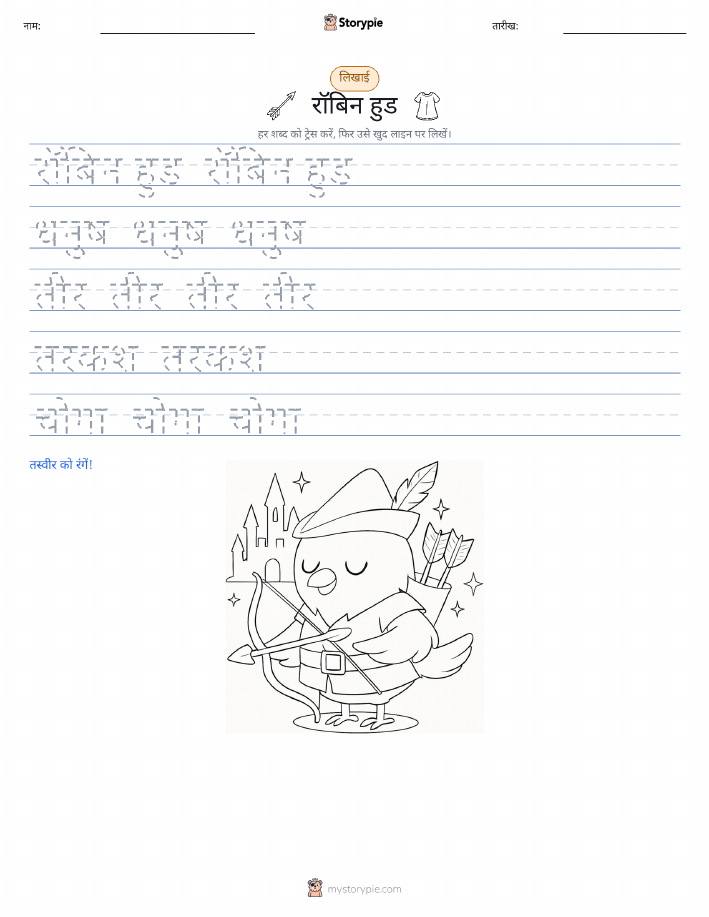 नाम:
Storypie
तारीख:
लिखाई
रॉबिन हुड
हर शब्द को ट्रेस करें, फिर उसे खुद लाइन पर लिखें।
रॉबिन हुड रॉबिन हुड
धनुष धनुष धनुष
तीर तीर तीर तीर
तरकश तरकश
चोगा चोगा चोगा
तस्वीर को रंगें!
mystorypie.com